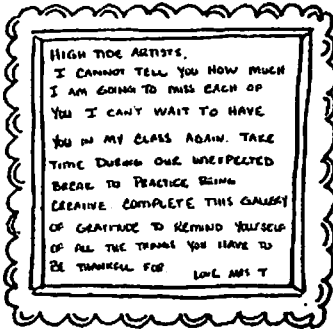 HIGH TIDE ARTISTS,
I CANNOT TELL YOU HOW MUCH
I AM GOING TO MISS EACH OF
YOU I CAN'T WAIT TO HAVE
YOU IN MY CLASS AGAIN. TAKE
TIME DURING OUR UNEXPECTED
BREAK TO PRACTICE BEING
CREATIVE. COMPLETE THIS GALLERY
OF GRATITUDE TO REMIND YOURSELF
OF ALL THE THINGS YOU HAVE TO
BE THANKFULL FOR
LOVE MRS T